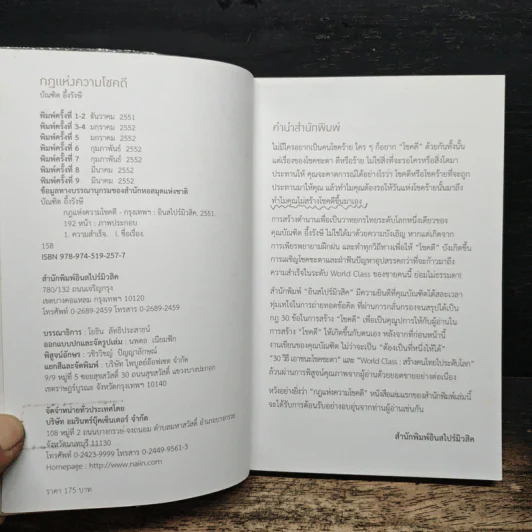 กฎแห่งความโชคดี
บัณฑิต อึ้งรังษี
พิมพ์ครั้งที่ 1-2 ธันวาคม 2551
พิมพ์ครั้งที่ 3-4 มกราคม 2552
พิมพ์ครั้งที่ 5 มกราคม 2552
พิมพ์ครั้งที่ 6 กุมภาพันธ์ 2552
พิมพ์ครั้งที่ 7 กุมภาพันธ์ 2552
พิมพ์ครั้งที่ 8 มีนาคม 2552
พิมพ์ครั้งที่ 9 มีนาคม 2552
ข้อมูลทางบรรณานุกรมของสำนักหอสมุดแห่งชาติ
บัณฑิต อึ้งรังษี
กฎแห่งความโชคดี - กรุงเทพฯ : อินสไปร์มิวสิค, 2551.
192 หน้า : ภาพประกอบ
1. ความสำเร็จ. I. ชื่อเรื่อง.
158
ISBN 978-974-519-257-7
สำนักพิมพ์อินสไปร์มิวสิค
780/132 ถนนเจริญกรุง
เขตบางคอแหลม กรุงเทพฯ 10120
โทรศัพท์ 0-2689-2459 โทรสาร 0-2689-2459
บรรณาธิการ : โยธิน ลัทธิประสาธน์
ออกแบบปกและจัดรูปเล่ม : นพดล เนียมเพ็ก
พิสูจน์อักษร : วชิรวิชญ์ ปัญญาลักษณ์
แยกสีและจัดพิมพ์ : บริษัท ไพบูลย์อ๊อฟเซต จำกัด
9/9 หมู่ที่ 5 ซอยสุขสวัสดิ์ 30 ถนนสุขสวัสดิ์ แขวงบางปะกอก
เขตราษฎร์บูรณะ จังหวัดกรุงเทพฯ 10140
จัดจำหน่ายทั่วประเทศโดย
บริษัท อมรินทร์บุ๊คเซ็นเตอร์ จำกัด
108 หมู่ที่ 2 ถนนบางกรวย-จงถนอม ตำบลมหาสวัสดิ์ อำเภอบางกรวย
จังหวัดนนทบุรี 11130
โทรศัพท์ 0-2423-9999 โทรสาร 0-2449-9561-3
Homepage : http://www.naiin.com
ราคา 175 บาท
คำนำสำนักพิมพ์
ไม่มีใครอยากเป็นคนโชคร้าย ใคร ๆ ก็อยาก "โชคดี" ด้วยกันทั้งนั้น
แต่เรื่องของโชคชะตา ดีหรือร้าย ไม่ใช่สิ่งที่จะรอใครหรือสิ่งใดมา
ประทานให้ คุณจะคาดการณ์ได้อย่างไรว่า โชคดีหรือโชคร้ายที่จะถูก
ประทานมาให้คุณ แล้วทำไมคุณต้องรอให้วันแห่งโชคร้ายนั้นมาถึง
ทำไมคุณไม่สร้างโชคดีขึ้นมาเอง
การสร้างตำนานเพื่อเป็นวาทยกรไทยระดับโลกหนึ่งเดียวของ
คุณบัณฑิต อึ้งรังษี ไม่ใช่ได้มาด้วยความบังเอิญ หากแต่เกิดจาก
การเพียรพยายามฝึกฝน และทำทุกวิถีทางเพื่อให้ "โชคดี" บังเกิดขึ้น
การเผชิญโชคชะตาและฝ่าฟันปัญหาอุปสรรคกว่าที่จะก้าวมาถึง
ความสำเร็จในระดับ World Class ของชายคนนี้ ย่อมไม่ธรรมดา!
สำนักพิมพ์ "อินสไปร์มิวสิค" มีความยินดีที่คุณบัณฑิตได้สละเวลา
ทุ่มเทใจในการถ่ายทอดข้อคิด ที่ผ่านการกลั่นกรองจนสรุปได้เป็น
กฎ 30 ข้อในการสร้าง "โชคดี" เพื่อเป็นคุณูปการให้กับผู้อ่านใน
การสร้าง "โชคดี" ให้เกิดขึ้นกับตนเอง หลังจากที่ก่อนหน้านี้
งานเขียนของคุณบัณฑิต ไม่ว่าจะเป็น "ต้องเป็นที่หนึ่งให้ได้"
"30 วิธี เอาชนะโชคชะตา" และ "World Class : สร้างคนไทยไประดับโลก"
ล้วนผ่านการพิสูจน์คุณภาพจากผู้อ่านด้วยยอดขายอย่างต่อเนื่อง
หวังอย่างยิ่งว่า "กฎแห่งความโชคดี" หนังสือเล่มแรกของสำนักพิมพ์เล่มนี้
จะได้รับการต้อนรับอย่างอบอุ่นจากท่านผู้อ่านเช่นกัน
สำนักพิมพ์อินสไปร์มิวสิค